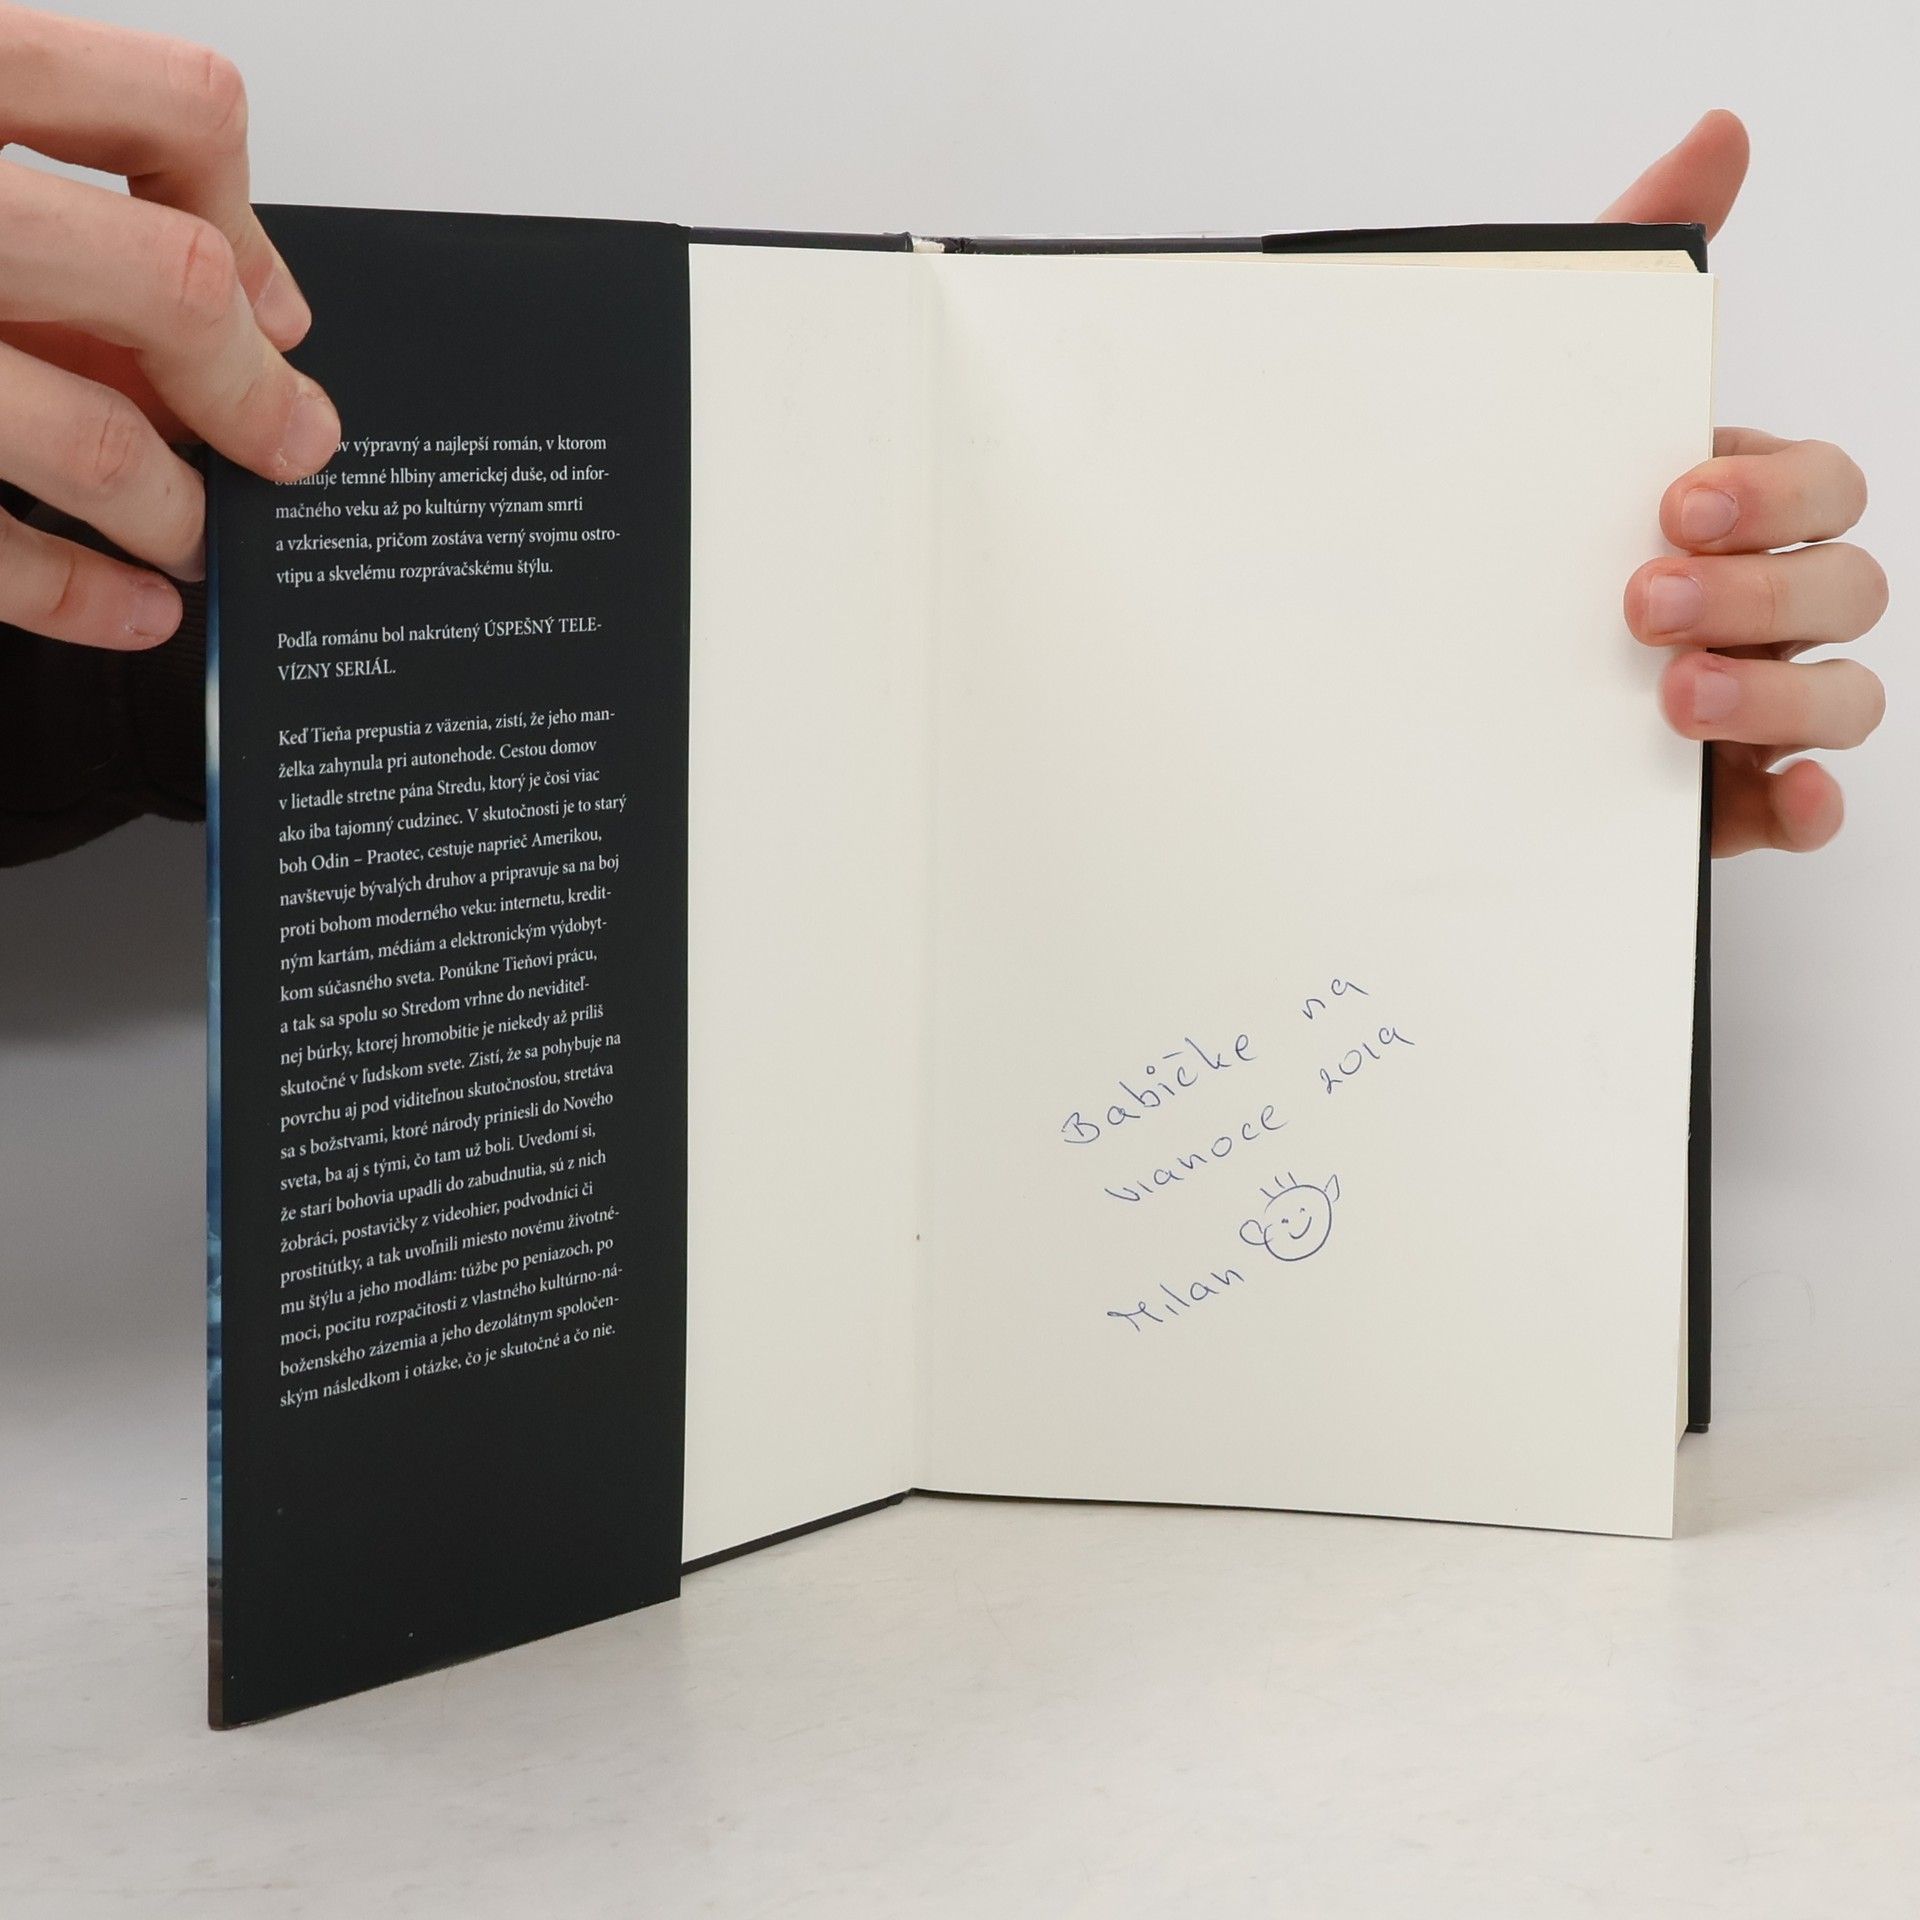 výpravný a najlepší román, v ktorom
temné hlbiny americkej duše, od infor-
mačného veku až po kultúrny význam smrti
a vzkriesenia, pričom zostáva verný svojmu ostro-
vtipu a skvelému rozprávačskému štýlu.
Podľa románu bol nakrútený ÚSPEŠNÝ TELE-
VÍZNY SERIÁL.
Keď Tieňa prepustia z väzenia, zistí, že jeho man-
želka zahynula pri autonehode. Cestou domov
v lietadle stretne pána Stredu, ktorý je čosi viac
ako iba tajomný cudzinec. V skutočnosti je to starý
boh Odin – Praotec, cestuje naprieč Amerikou,
navštevuje bývalých druhov a pripravuje sa na boj
proti bohom moderného veku: internetu, kredit-
ným kartám, médiám a elektronickým výdobyt-
kom súčasného sveta. Ponúkne Tieňovi prácu,
a tak sa spolu so Stredom vrhne do neviditeľ-
nej búrky, ktorej hromobitie je niekedy až príliš
skutočné v ľudskom svete. Zistí, že sa pohybuje na
povrchu aj pod viditeľnou skutočnosťou, stretáva
sa s božstvami, ktoré národy priniesli do Nového
sveta, ba aj s tými, čo tam už boli. Uvedomí si,
že starí bohovia upadli do zabudnutia, sú z nich
žobráci, postavičky z videohier, podvodníci či
prostitútky, a tak uvoľnili miesto novému životné-
mu štýlu a jeho modlám: túžbe po peniazoch, po
moci, pocitu rozpačitosti z vlastného kultúrno-ná-
boženského zázemia a jeho dezolátnym spoločen-
ským následkom i otázke, čo je skutočné a čo nie.
Babičke na
vianoce 2019
Milan